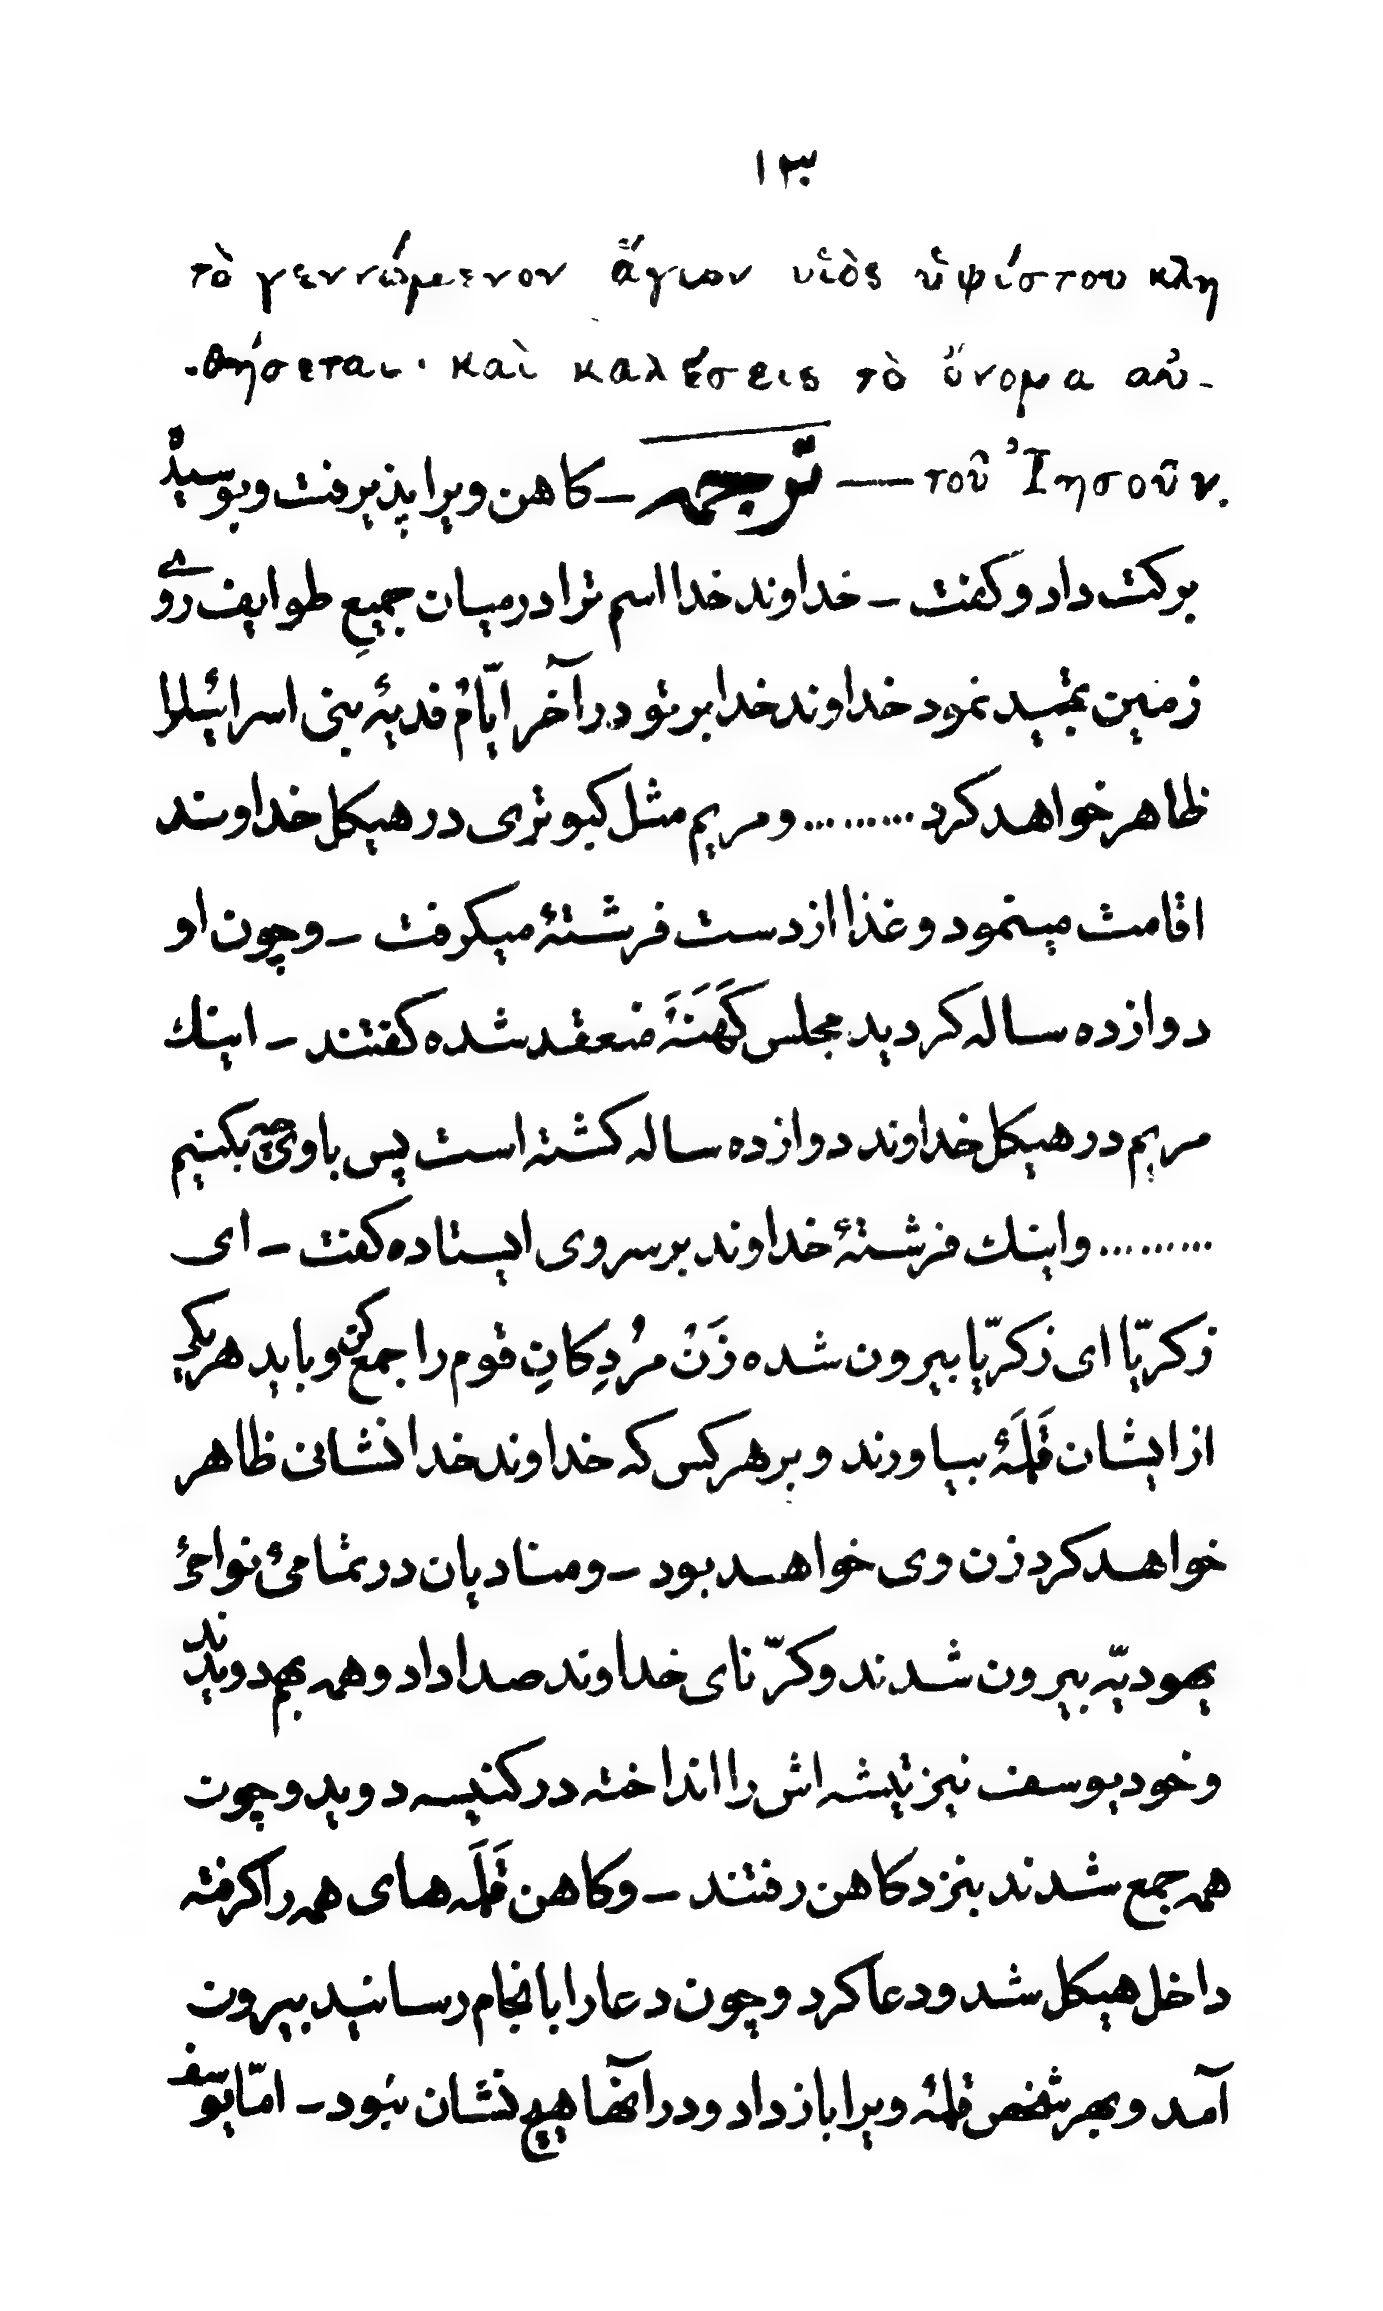 ۱۳۰
τὸ γεννώμενον ἅγιον υἱὸς ὑψίστου κλη
-θήσεται· καὶ καλέσεις τὸ ὄνομα αὐ-
τοῦ Ἰησοῦν. — ترجمه – کاهن ویرا پذیرفت و بوسیدْ
برکت داد و کفت – خداوند خدا اسم ترا در میان جمیعِ طوایف روے
زمین تمجید نمود خداوند خدا بر تو در آخر ایّام فدیهٔ بنی اسرائیل را
ظاهر خواهد کرد ......... و مریم مثل کبوتری در هیکل خداوند
اقامت مینمود و غذا از دست فرشتهٔ میکرفت – و چون او
دوازده ساله کردید مجلس کَهَنَهٔ منعقد شده کفتند – اینك
مریم در هیکل خداوند دوازده ساله کشته است پس با وی چه بکنیم
......... و اینك فرشتهٔ خداوند بر سر وی ایستاده کفت – ای
زکریّا ای زکریّا بیرون شده زَنْ مُرْدِکانِ قوم را جمع کن و باید هر یکی
از ایشان قَلَمهٔ بیاورند و بر هر کس که خداوند خدا نشانی ظاهر
خواهد کرد زن وی خواهد بود – و منادیان در تمامیٔ نواحیٔ
یهودیّه بیرون شدند و کرّنای خداوند صدا داد و همه بهم دویدند
و خود یوسف نیز تیشه اش را انداخته در کنیسه دوید و چون
همه جمع شدند بنزد کاهن رفتند – و کاهن قَلَمه های همه را کرفته
داخل هیکل شد و دعا کرد و چون دعا را بانجام رسانید بیرون
آمد و بهر شخص قلمهٔ ویرا باز داد و در آنها هیچ نشان نبود – امّا یوسف